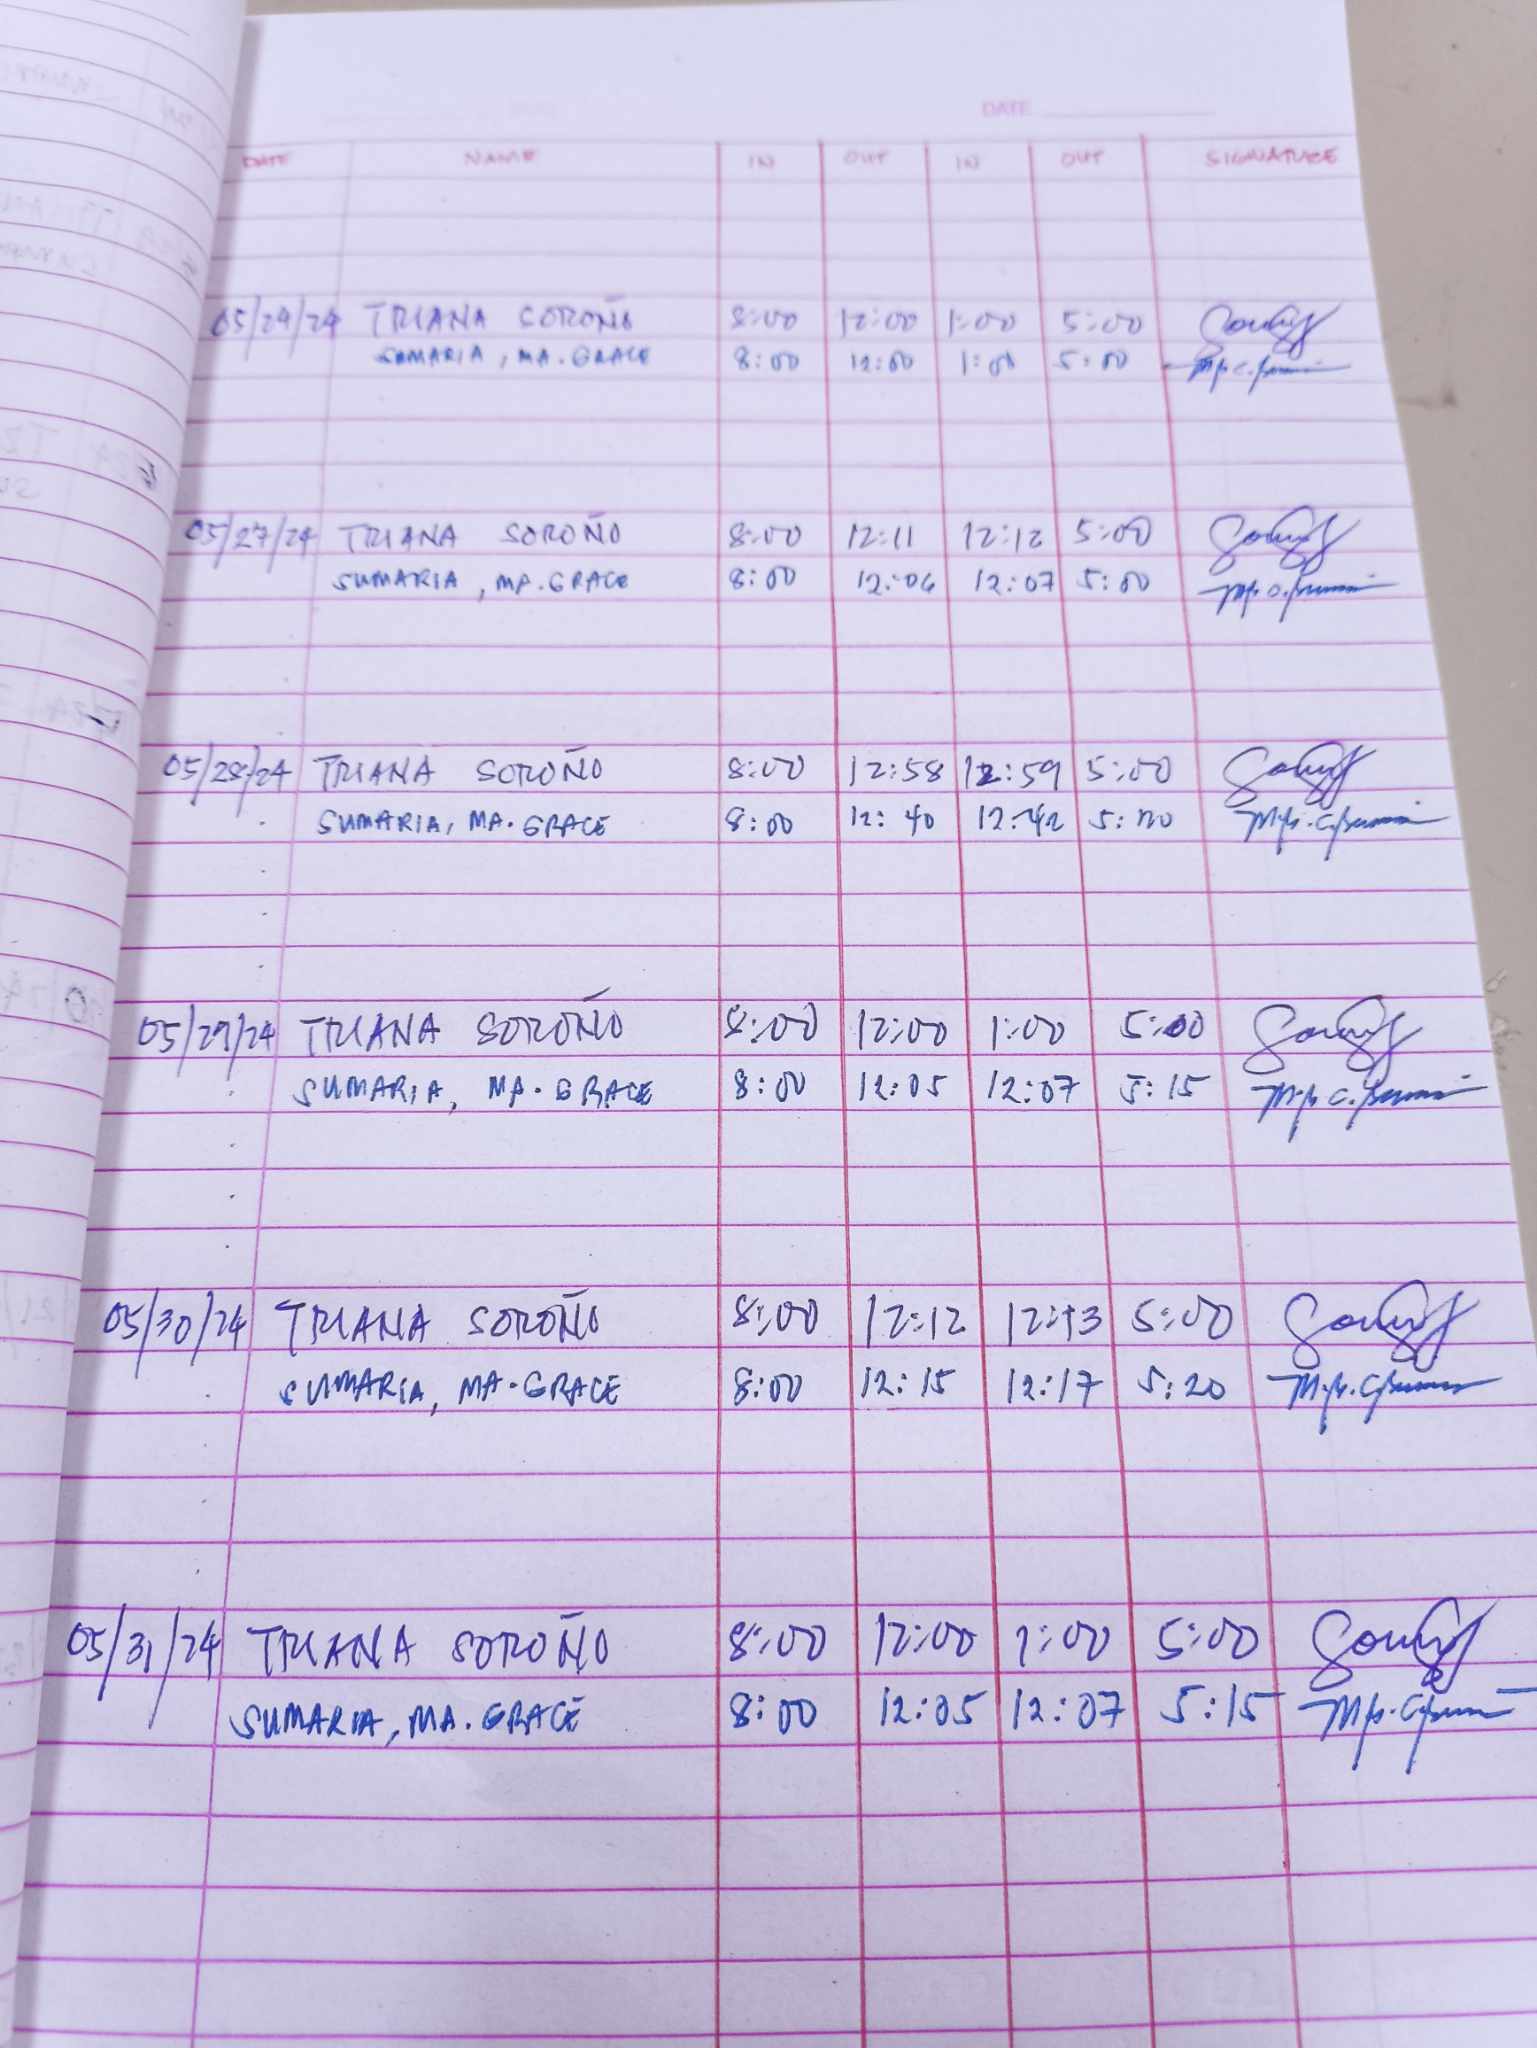 DATE
DATE NAME IN OUT IN OUT SIGNATURE
05/24/24 TRIANA SOROÑO 8:00 12:00 1:00 5:00
SUMARIA, MA. GRACE 8:00 12:00 1:00 5:00
05/27/24 TRIANA SOROÑO 8:00 12:11 12:12 5:00
SUMARIA, MA. GRACE 8:00 12:06 12:07 5:00
05/28/24 TRIANA SOROÑO 8:00 12:58 12:59 5:00
SUMARIA, MA. GRACE 8:00 12:40 12:42 5:00
05/29/24 TRIANA SOROÑO 8:00 12:00 1:00 5:00
SUMARIA, MA. GRACE 8:00 12:05 12:07 5:15
05/30/24 TRIANA SOROÑO 8:00 12:12 12:13 5:00
SUMARIA, MA. GRACE 8:00 12:15 12:17 5:20
05/31/24 TRIANA SOROÑO 8:00 12:00 1:00 5:00
SUMARIA, MA. GRACE 8:00 12:05 12:07 5:15